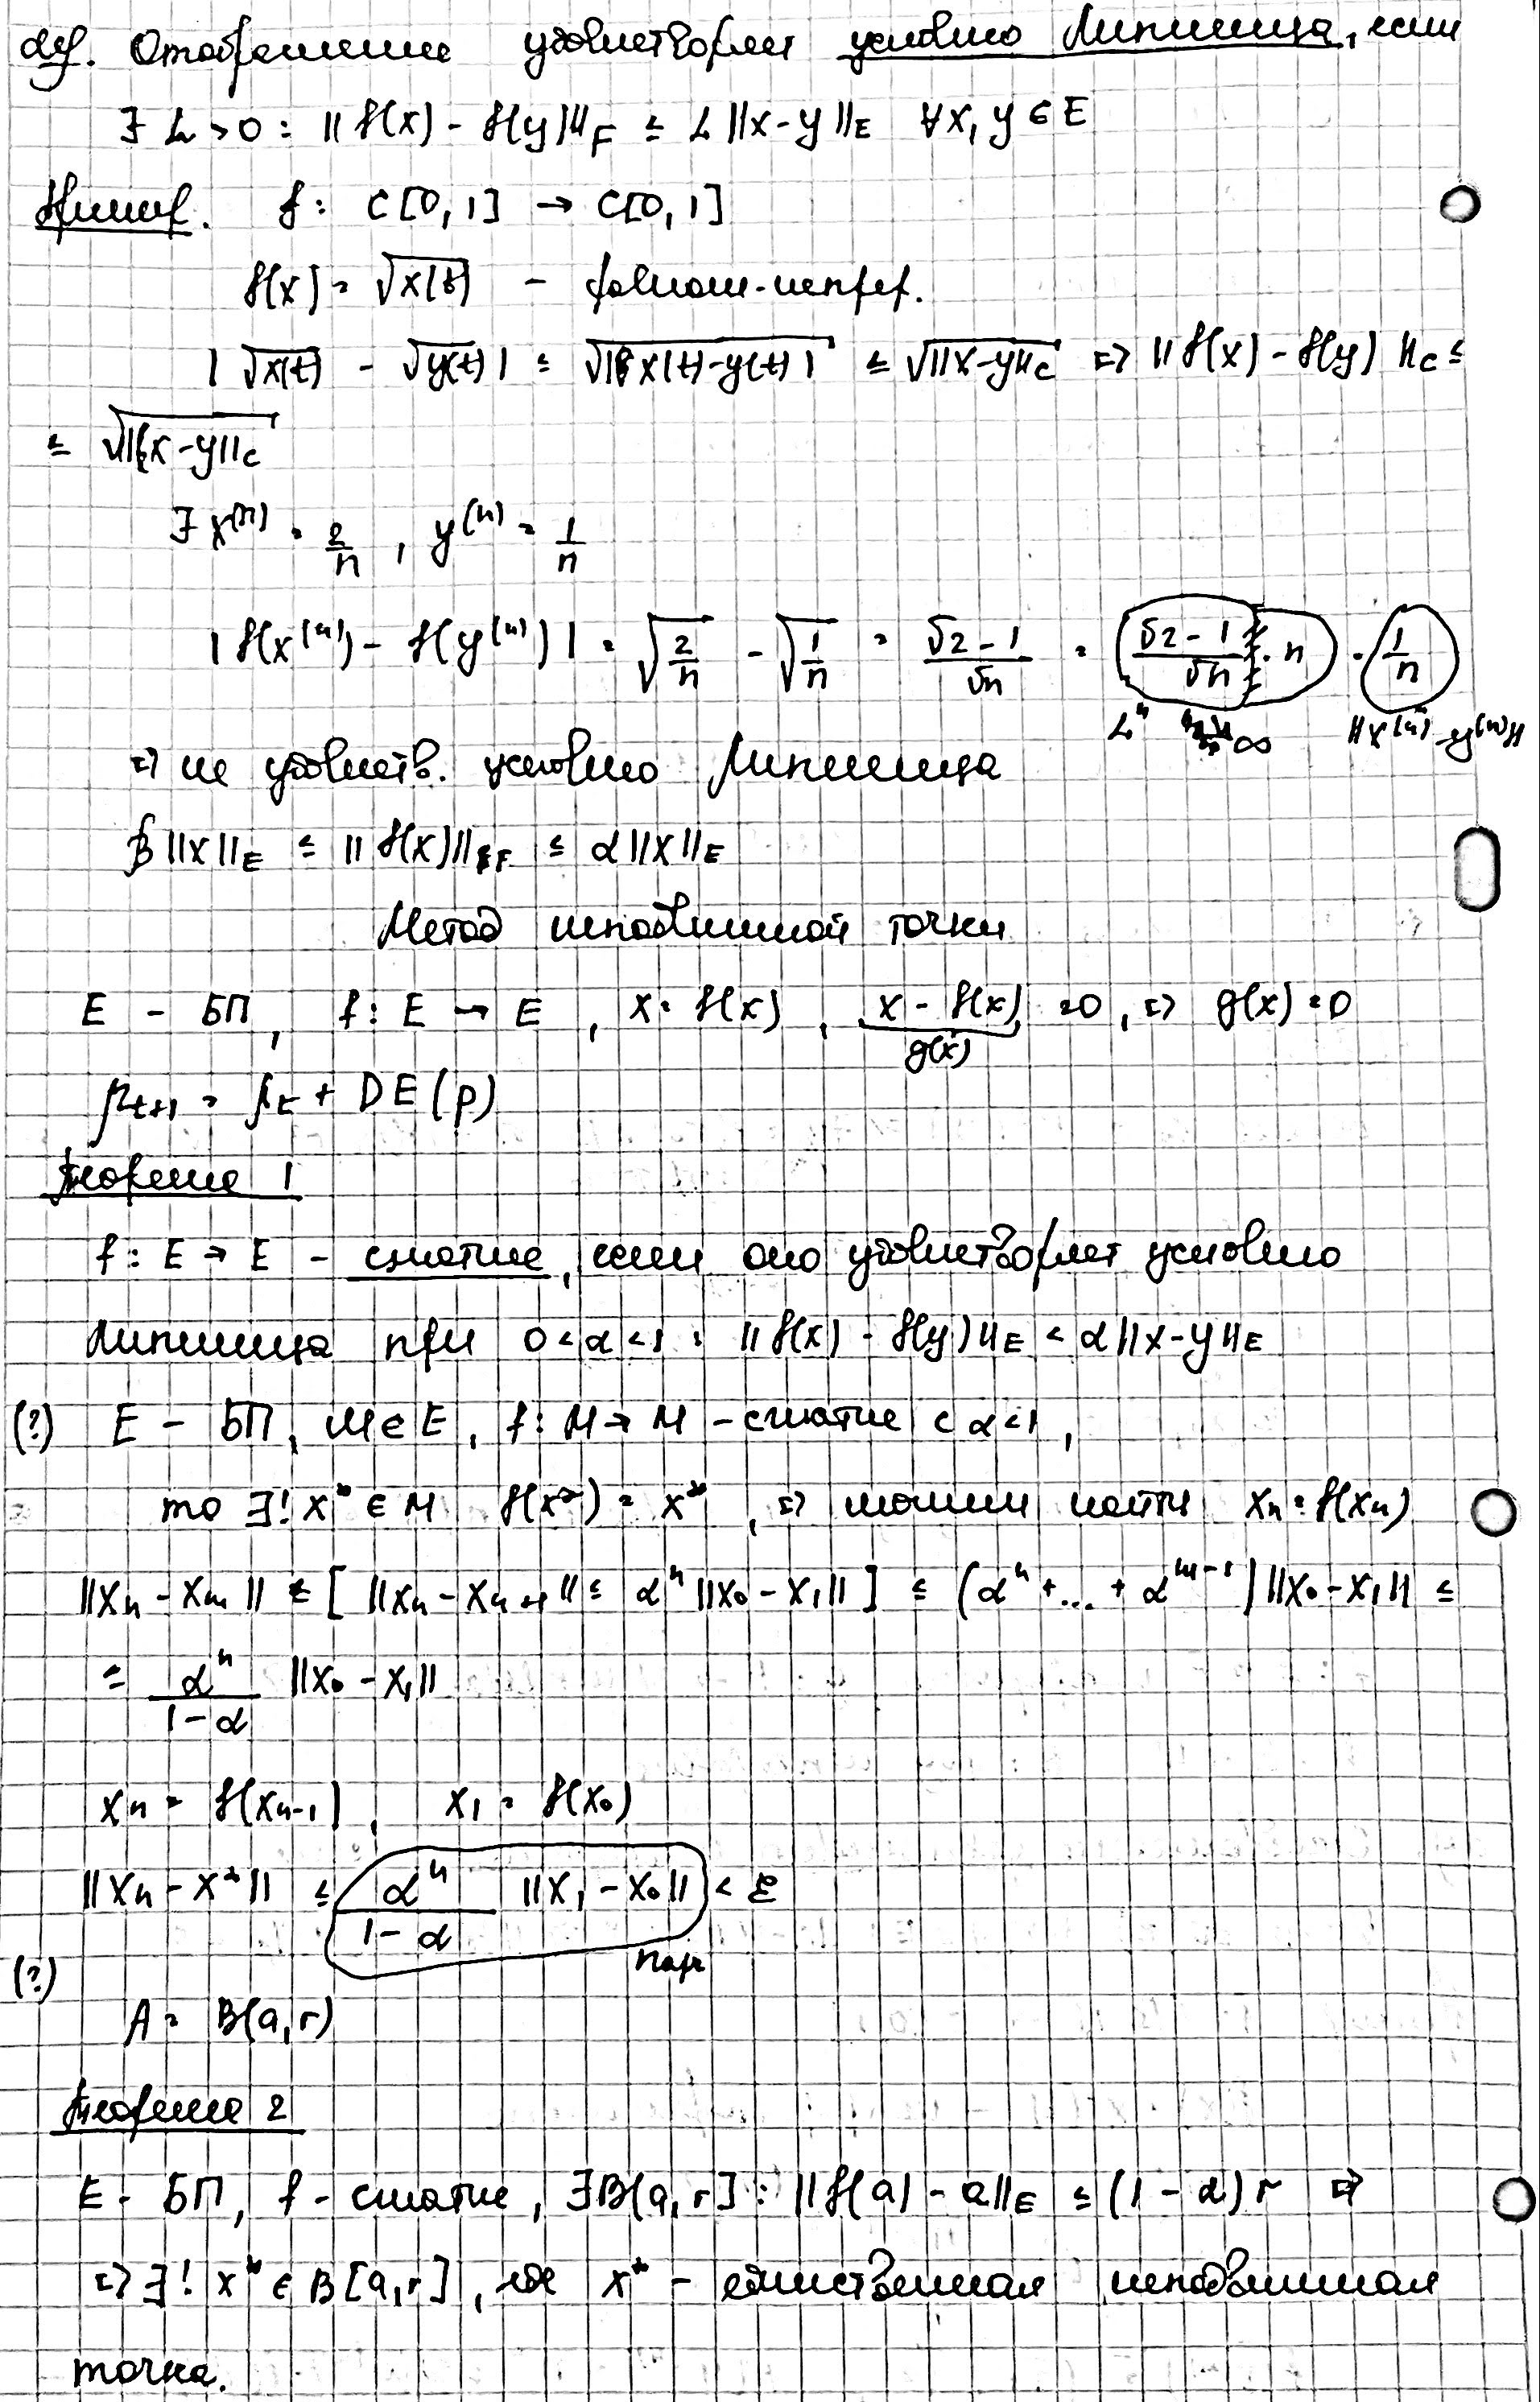 def. Отображение удовлетворяет условию Липшица, если
∃ L > 0 : || f(x) - f(y) ||_F ≤ L ||x-y||_E ∀x, y ∈ E
Пример. f: C[0, 1] → C[0, 1]
f(x) = √x(t) -
| √x(t) - √y(t) | ≤ √|x(t)-y(t)| ≤ √||x-y||_C => || f(x) - f(y) ||_C ≤
≤ √||x-y||_C
∃ x^(n) = 2/n , y^(n) = 1/n
| f(x^(n)) - f(y^(n)) | = √(2/n) - √(1/n) = (√2 - 1)/√n = (√2 - 1)/√n · n · 1/n
L^n → ∞ ||x^(n) - y^(n)||
=> не удовлетв. условию Липшица
β ||x||_E ≤ || f(x) ||_F ≤ α ||x||_E
Метод неподвижной точки
E - БП, f: E → E , x = f(x) , x - f(x) = 0 , => g(x) = 0
g(x)
p_t+1 = p_t + DE(p)
Теорема 1
f : E → E - сжатие, если оно удовлетворяет условию
Липшица при 0 < α < 1 : || f(x) - f(y) ||_E < α ||x-y||_E
(?) E - БП, M ∈ E, f: M → M - сжатие с α < 1,
то ∃! x* ∈ M f(x*) = x* , => можем найти x_n = f(x_n)
||x_n - x_m || ≤ [ ||x_n - x_n+1 || ≤ α^n ||x_0 - x_1|| ] ≤ (α^n + ... + α^(m-1)) ||x_0 - x_1|| ≤
≤ α^n/(1-α) ||x_0 - x_1||
x_n = f(x_n-1) , x_1 = f(x_0)
||x_n - x*|| ≤ α^n/(1-α) ||x_1 - x_0|| < ε
(?)
A = B(a, r)
Теорема 2
E - БП, f - сжатие, ∃ B[a, r] : || f(a) - a ||_E ≤ (1 - α) r =>
=> ∃! x* ∈ B[a, r] , где x* - единственная неподвижная
точка.